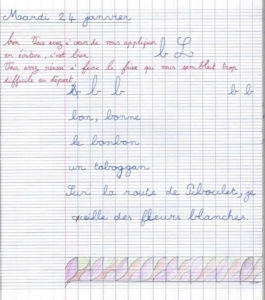 Mardi 24 janvier
bien. Vous avez à cœur de vous appliquer
en écriture, c'est bien.
b L
Vous avez réussi à faire la frise qui vous semblait trop
difficile au départ.
b b b b b
bon, bonne
le bonbon
un toboggan
Sur la route de Piboulet, je
cueille des fleurs blanches.